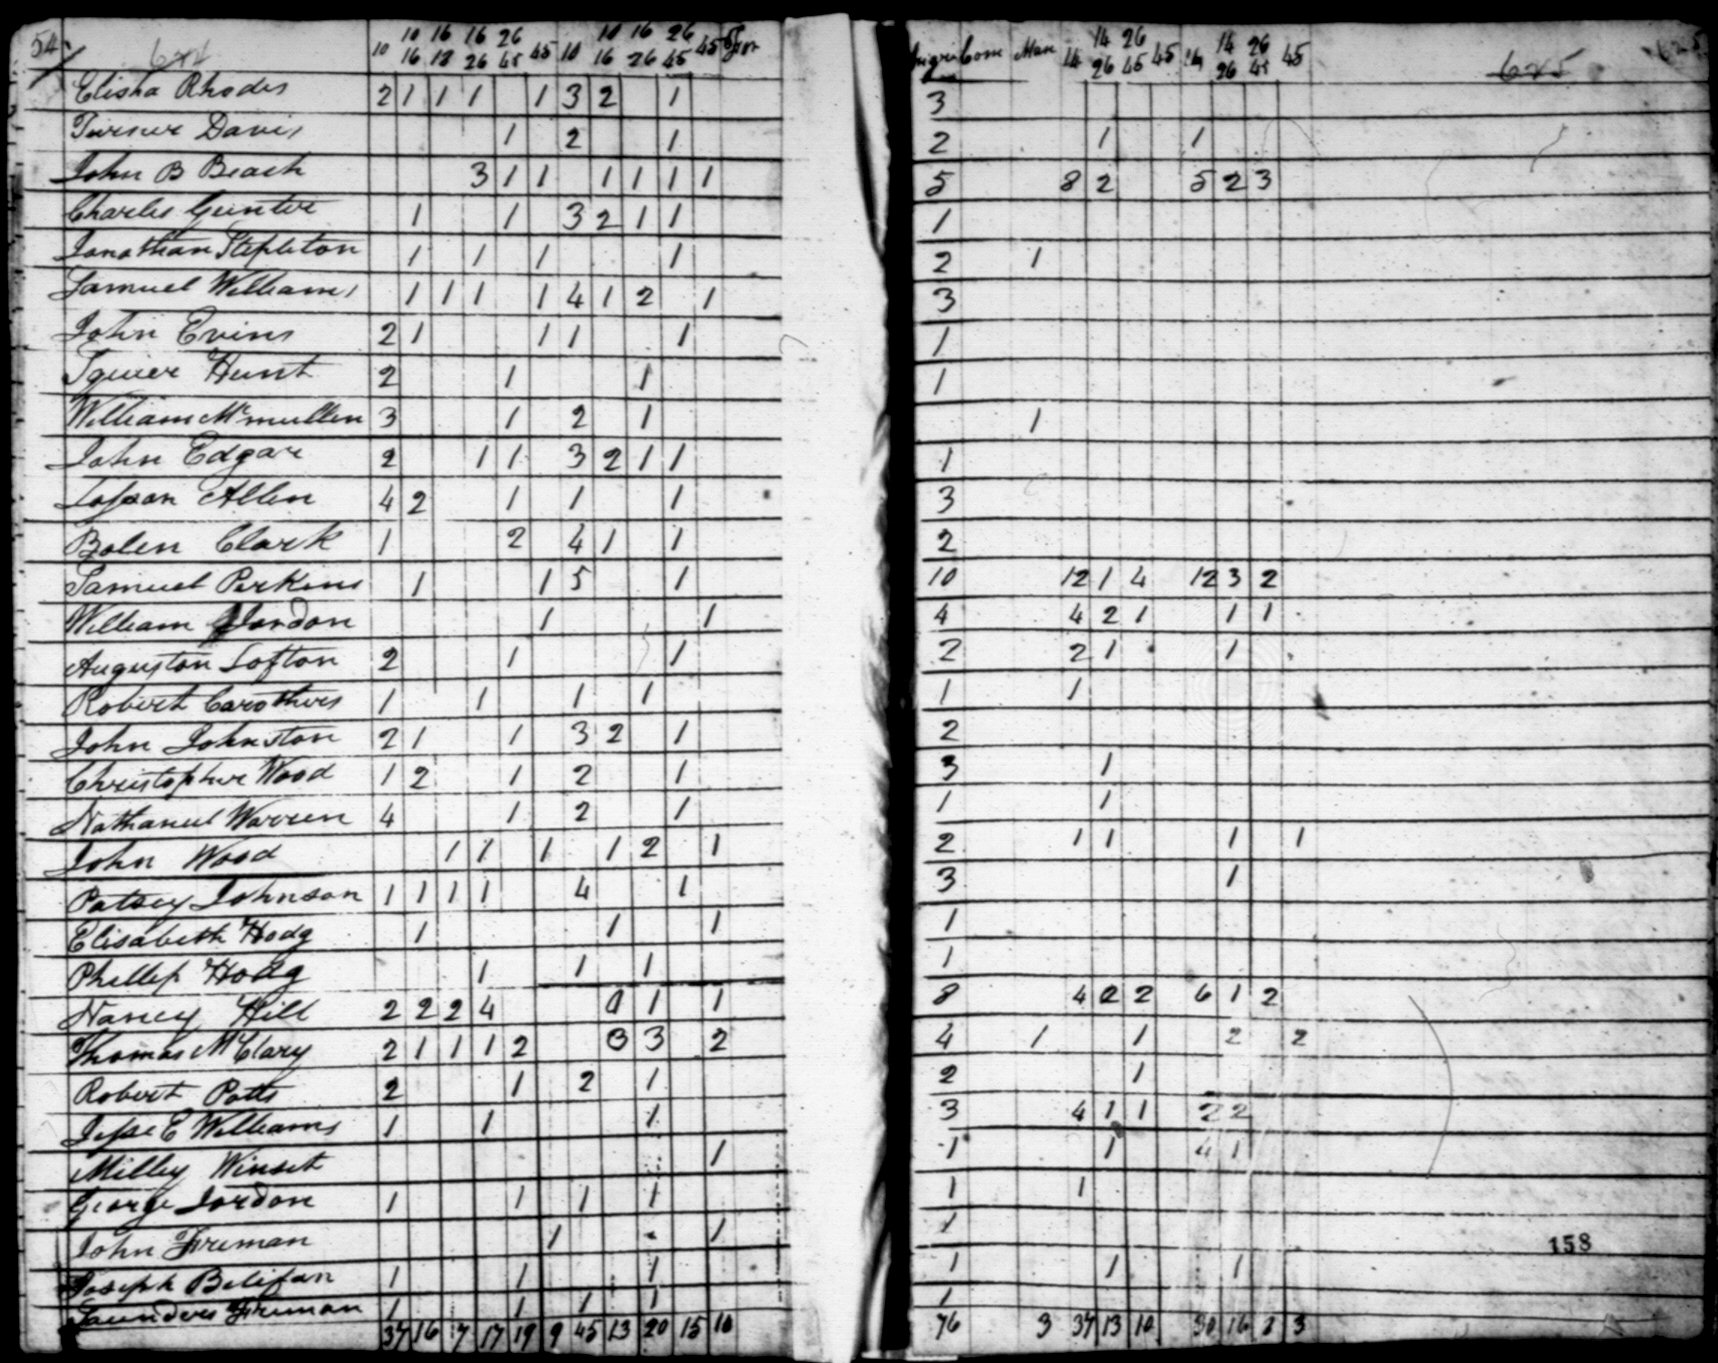 54 624
10 10 16 16 26 45 10 10 16 26 45
16 18 26 45 16 26 45
Agri Com Man 14 14 26 45 14 14 26 45 625
26 45 26 45
Elisha Rhodes 2 1 1 1 1 3 2 1 3
Turner Davis 1 2 1 2 1 1
John B Beach 3 1 1 1 1 1 1 5 8 2 5 2 3
Charles Gunter 1 1 3 2 1 1 1
Jonathan Stepleton 1 1 1 1 2 1
Samuel Williams 1 1 1 1 4 1 2 1 3
John Evins 2 1 1 1 1 1
Squier Hunt 2 1 1 1
William Mcmullen 3 1 2 1 1
John Edgar 2 1 1 3 2 1 1 1
Allen 4 2 1 1 1 3
Bolen Clark 1 2 4 1 1 2
Samuel Perkins 1 1 5 1 10 12 1 4 12 3 2
William Jordon 1 1 4 4 2 1 1 1
Auguston Lofton 2 1 1 2 2 1 1
Robert Carothers 1 1 1 1 1 1
John Johnston 2 1 1 3 2 1 2
Christopher Wood 1 2 1 2 1 3 1
Nathanuel Warren 4 1 2 1 1 1
John Wood 1 1 1 1 2 1 2 1 1 1 1
Patsey Johnson 1 1 1 1 4 1 3 1
Elisabeth Hodg 1 1 1 1
Phillip Hodg 1 1 1 1
Nancy Hill 2 2 2 4 1 1 8 4 2 2 6 1 2
Thomas McClary 2 1 1 1 2 3 3 2 4 1 1 2 2
Robert Potts 2 1 2 1 2 1
Jesse C Williams 1 1 1 3 4 1 1 2 2
Milley Winset 1 1 1 4 1
George Jordon 1 1 1 1 1 1
John Freman 1 1 1
158
Joseph Belifan 1 1 1 1 1 1
Saunders Freman 1 1 1 1 1
37 16 7 17 19 9 45 13 20 15 10 76 3 37 13 10 30 16 3